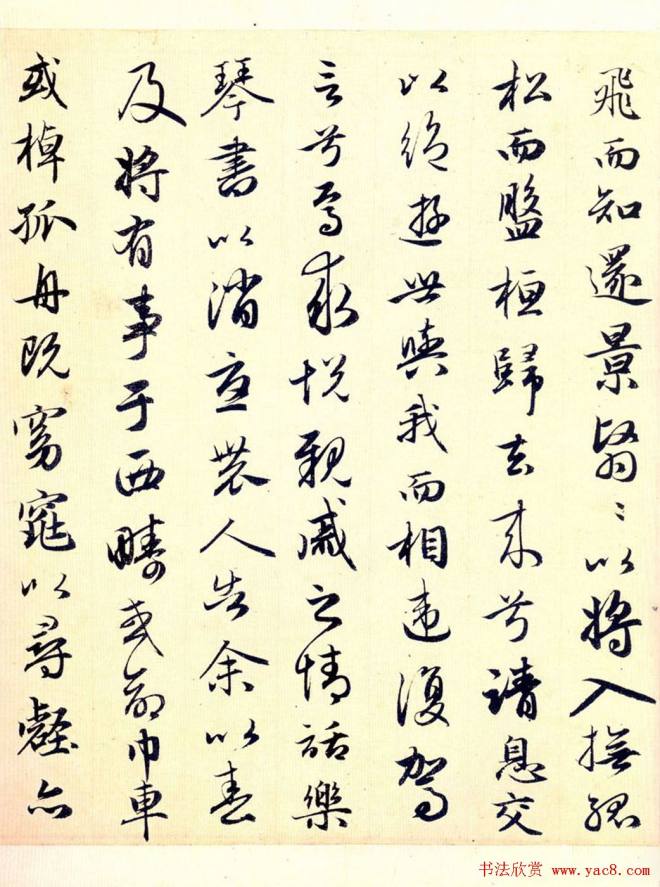 飛而知還景翳〻以將入撫孤
松而盤桓歸去来兮請息交
以絶遊世與我而相違復駕
言兮焉求悦親戚之情話樂
琴書以消憂農人告余以春
及將有事于西疇或命巾車
或棹孤舟既窈窕以尋壑亦
书法欣赏 www.yac8.com